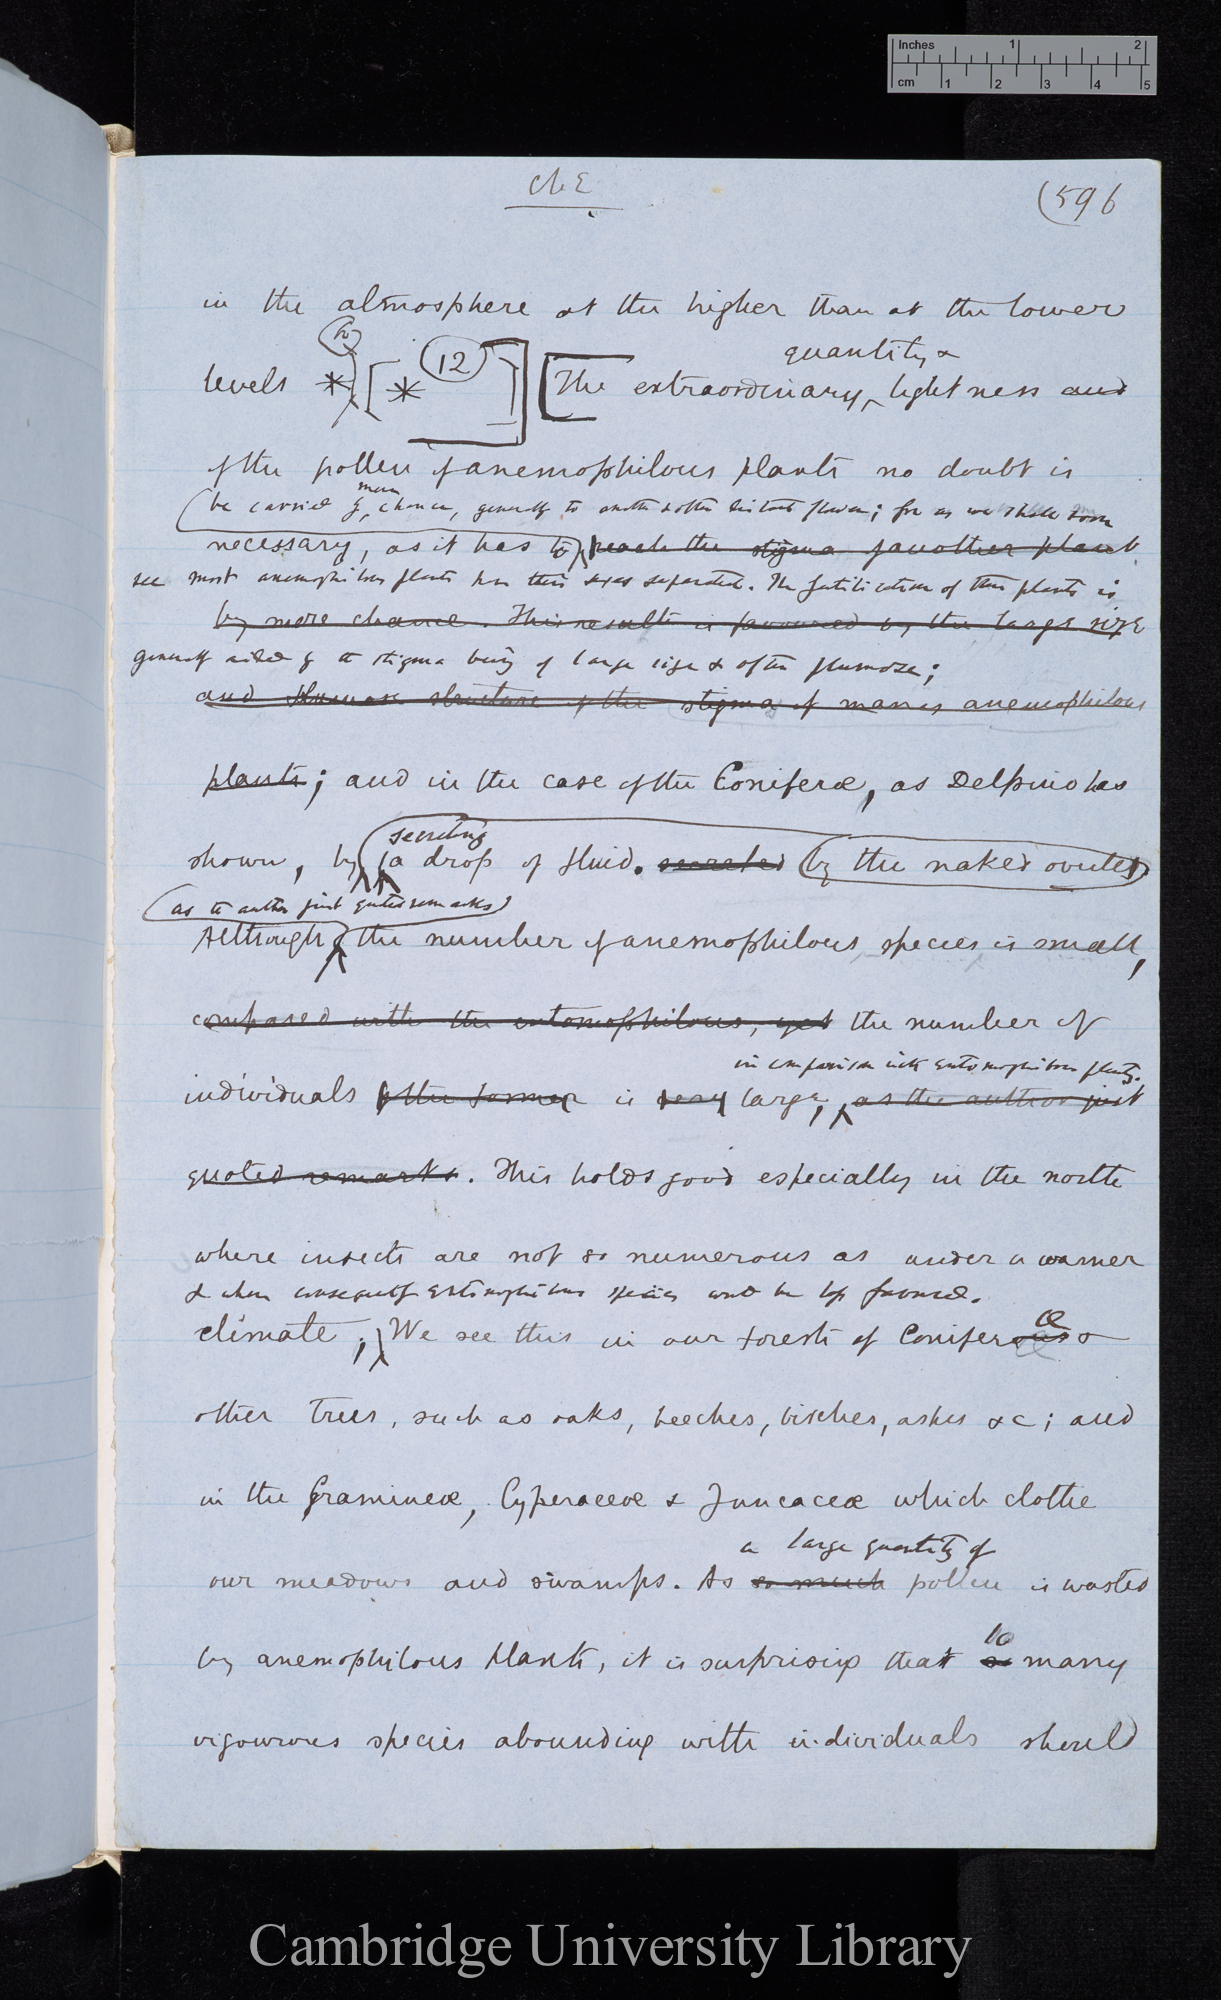 Inches 1 2
cm 1 2 3 4 5
Ch E
(596
in the atmosphere at the higher than at the lower
12
quantity &
levels * [ * ] [The extraordinary, lightness and
of the pollen of anemophilous plants no doubt is
mere
be carried by chance, generally to another & often distant flower; for as we shall soon
necessary, as it has to reach the stigma of another plant
see most anemophilous plants have their sexes separated. The fertilisation of these plants is
by mere chance. This result is favoured by the large size
generally aided by the stigma being of large size & often plumose;
and plumose structure of the stigma of many anemophilous
plants; and in the case of the Coniferæ, as Delpino has
secreting
shown, by a drop of fluid. secreted by the naked ovules
(as the author just quoted remarks)
Although the number of anemophilous species is small,
compared with the entomophilous, yet the number of
in comparison with entomophilous plants.
individuals of the former is very large, as the author just
quoted remarks. This holds good especially in the north
where insects are not so numerous as under a warmer
& where consequently entomophilous species would be less favoured.
climate; We see this in our forests of Coniferous &
æ
other trees, such as oaks, beeches, birches, ashes &c; and
in the Gramineæ, Cyperaceæ & Juncaceæ which clothe
a large quantity of
our meadows and swamps. As so much pollen is wasted
by anemophilous plants, it is surprising that so many
so
vigourous species abounding with individuals should
Cambridge University Library